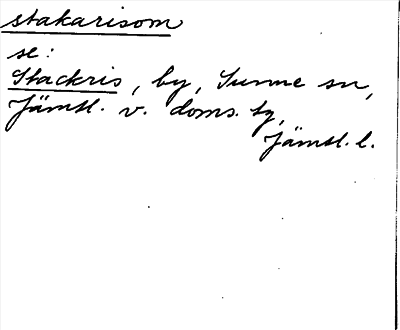 stakarisom
se:
Stackris, by, Sunne sn,
Jämtl. v. doms. tg,
Jämtl. l.